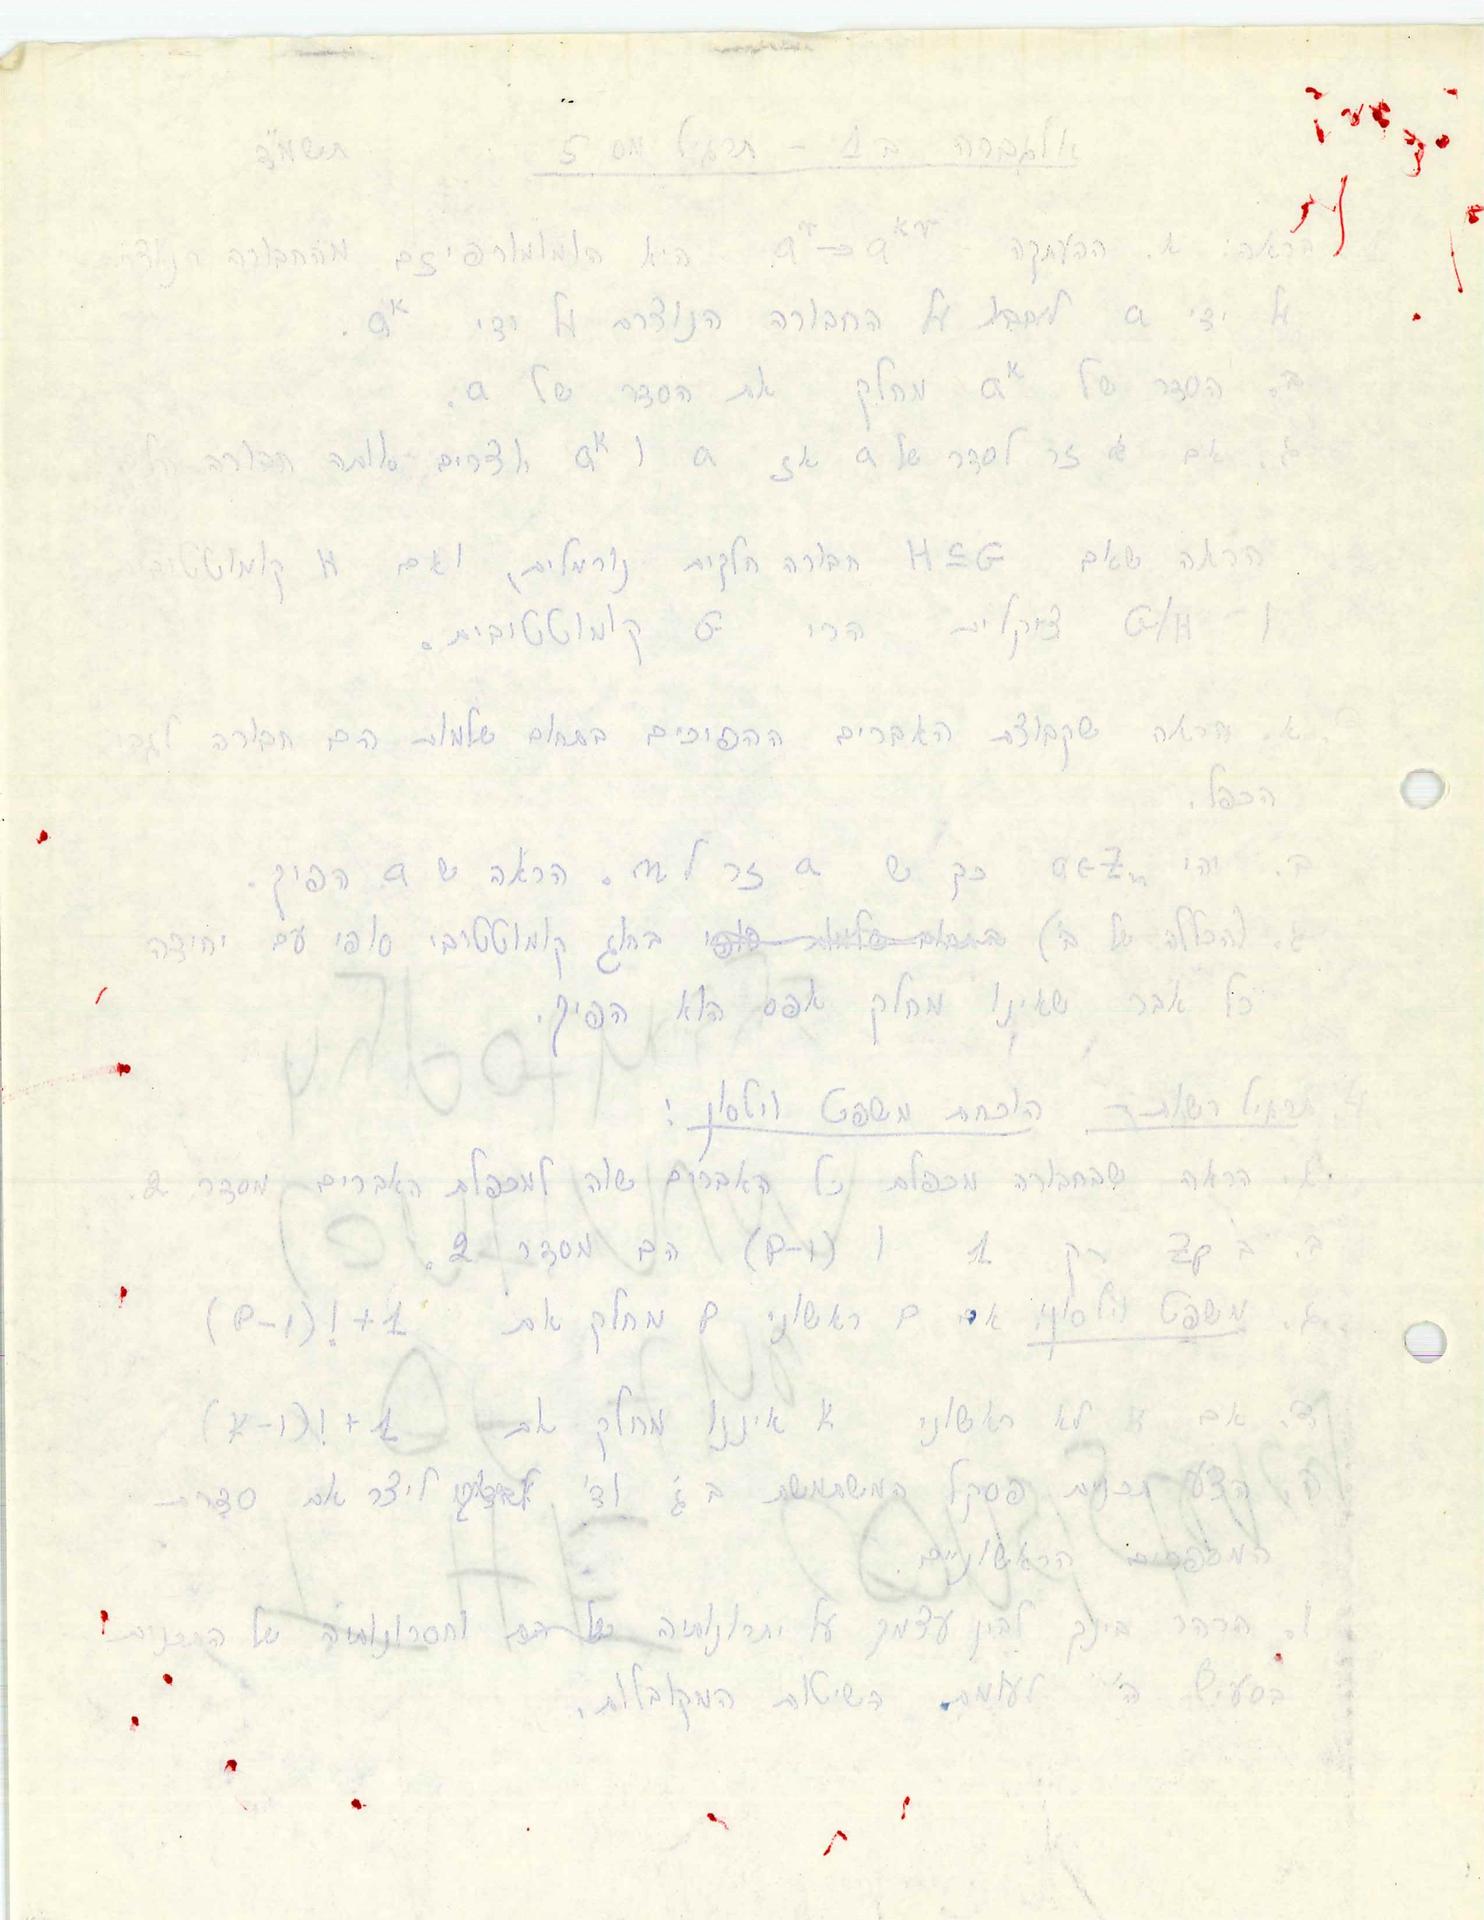 אלגברה ב1 - תרגיל מס 5 תשמ"ג
הראה: א. ההעתקה היא הומומורפיזם מהחבורה הנוצרת
על ידי a על החבורה הנוצרת על ידי aᴷ.
ב. הסדר של aᴷ מחלק את הסדר של a.
ג. אם k זר לסדר של a אז a ו aᴷ יוצרים אותה חבורה
הראה שאם H≤G חבורה חלקית נורמלית, ואם H קומוטטיבית
ו G/H ציקלית הרי G קומוטטיבית.
א. הראה שקבוצת האברים ההפיכים בתחום שלמות הם חבורה לגבי
הכפל.
ב. יהי a∈Zₘ כך ש a זר ל m. הראה ש a הפיך.
ג. (הכללה של ב') בתחום שלמות סופי בחוג קומוטטיבי סופי עם יחידה
כל אבר שאינו מחלק אפס הוא הפיך.
4. תרגיל רשות - הוכחת משפט וילסון:
א. הראה שבחבורה מכפלת כל האברים שוה למכפלת האברים מסדר 2.
ב. ב Zp רק 1 ו (p-1) הם מסדר 2.
ג. משפט וילסון: אם p ראשוני p מחלק את (p-1)!+1
ד. אם k לא ראשוני k איננו מחלק את (k-1)!+1
ה. הצע תכנית פסקל המשתמשת ב ג' וד' ליצר את סדרת
המספרים הראשוניים.
ו. הרהר בינך לבין עצמך על יתרונותיה וחסרונותיה של התכנית
בסעיף ה' לעומת השיטות המקובלות.